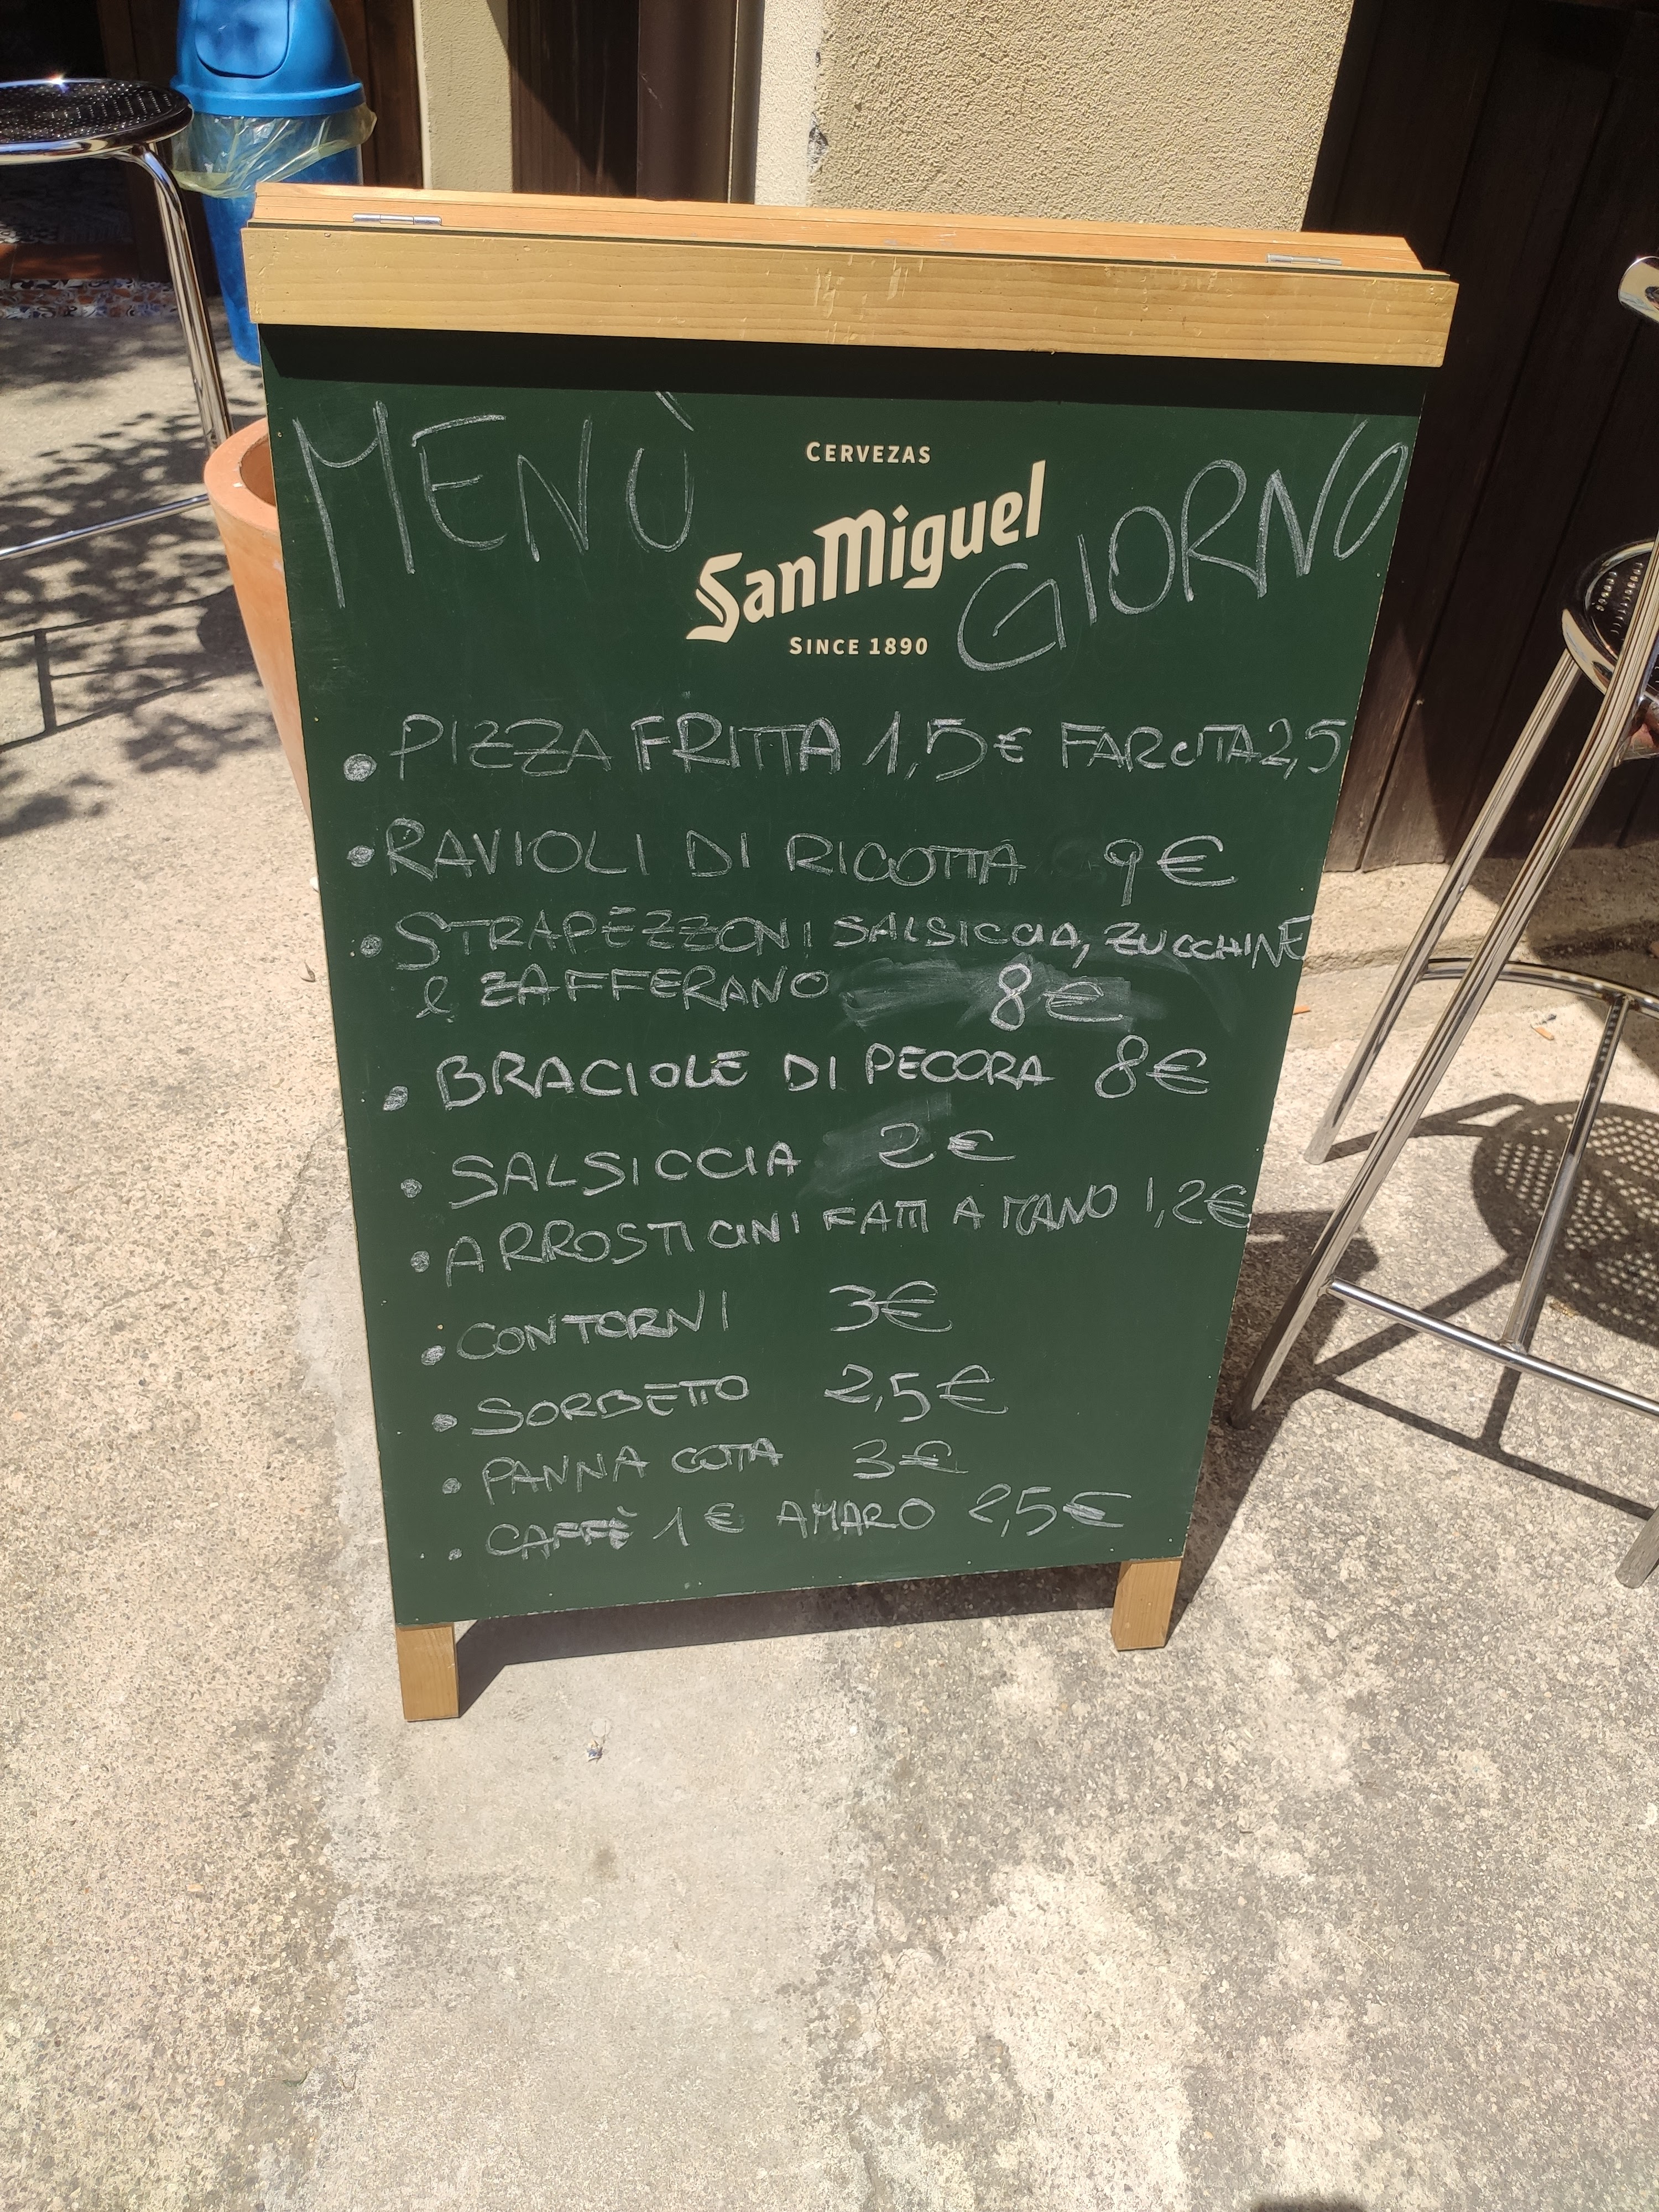 MENÙ
CERVEZAS
SanMiguel
SINCE 1890
GIORNO
• PIZZA FRITTA 1,5€ FARCITA 2,5
• RAVIOLI DI RICOTTA 9€
• STRAPEZZONI SALSICCIA, ZUCCHINE
e ZAFFERANO 8€
• BRACIOLE DI PECORA 8€
• SALSICCIA 2€
• ARROSTICINI FATTI A MANO 1,2€
• CONTORNI 3€
• SORBETTO 2,5€
• PANNA COTTA 3€
• CAFFÈ 1€ AMARO 2,5€